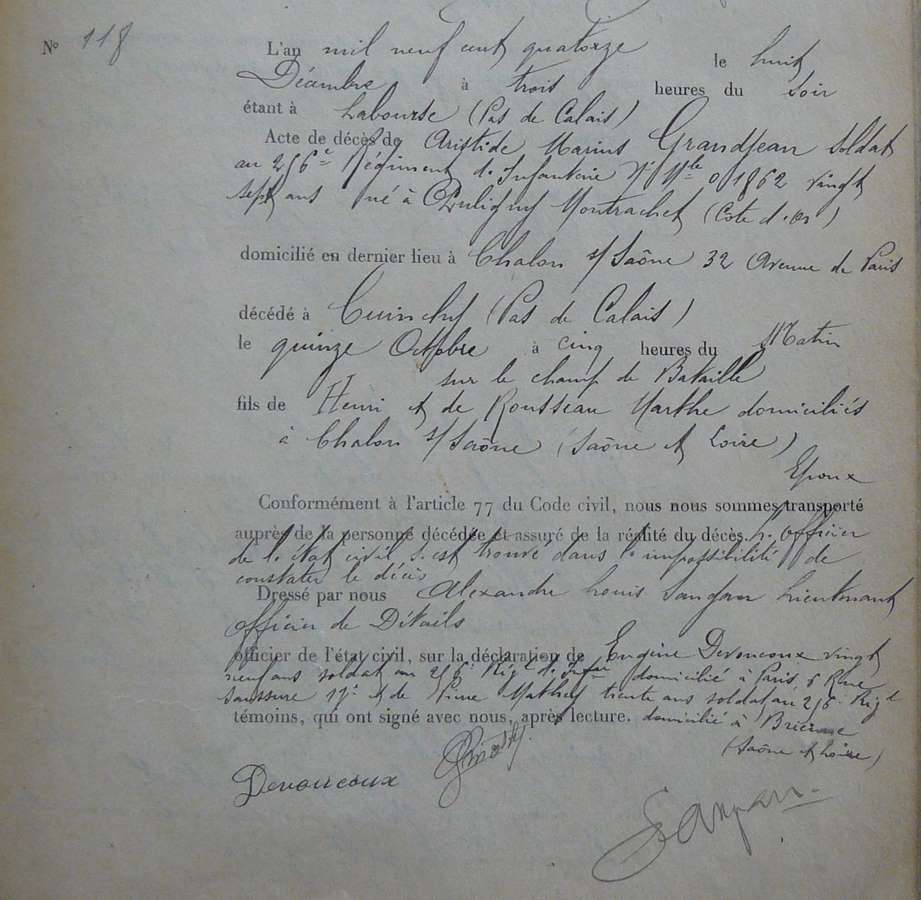 N° 118
L'an mil neuf cent quatorze le huit
Décembre à trois heures du soir
étant à Labourse (Pas de Calais)
Acte de décès de Aristide Marius Grandjean soldat
au 256e Régiment d'Infanterie Nº Mle 01862 vingt
sept ans né à Puligny Montrachet (Cote d'or)
domicilié en dernier lieu à Chalon s/Saône 32 Avenue de Paris
décédé à Cuinchy (Pas de Calais)
le quinze Octobre à cinq heures du Matin
sur le champ de Bataille
fils de Henri et de Rousseau Marthe domiciliés
à Chalon s/Saône (Saône et Loire)
Epoux
Conformément à l'article 77 du Code civil, nous nous sommes transporté
auprès de la personne décédée et assuré de la réalité du décès. L'officier
de l'état civil s'est trouvé dans l'impossibilité de
constater le décès
Dressé par nous Alexandre Louis Lieutenant
officier de Détails
officier de l'état civil, sur la déclaration de Eugène Devoucoux vingt
neuf ans soldat au 256e Rég d'Infie domicilié à Paris 6 Rue
Saussure 17e et de Pierre trente ans soldat au 256e Régt
témoins, qui ont signé avec nous, après lecture. domicilié à
(Saône et Loire)
Devoucoux